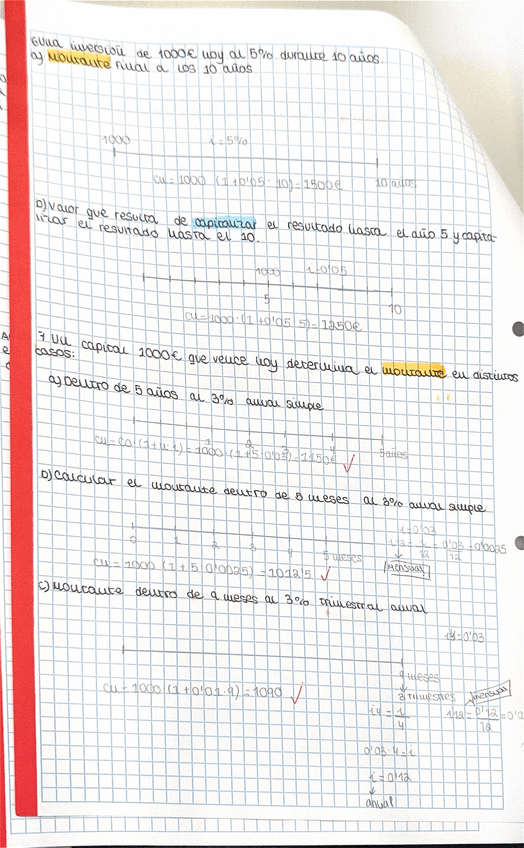 6 una inversión de 1000€ hoy al 5% durante 10 años.
a) Montante final a los 10 años
1000 i=5%
10 años
cn=1000 (1+0'05·10)=1500€
b) valor que resulta de capitalizar el resultado hasta el año 5 y capita-
lizar el resultado hasta el 10.
1000 i=0'05
5 10
cn=1000·(1+0'05·5)=1250€
7 Un capital 1000€ que vence hoy determina el montante en distintos
casos:
a) Dentro de 5 años al 3% anual simple
1 2 3 4 5 años
cn=C0·(1+n·i)=1000·(1+5·0'03)=1150€
b) Calcular el montante dentro de 5 meses al 3% anual simple
0 1 2 3 4 5 meses
i=0'03
i12=i/12=0'03/12=0'0025
mensual
cn=1000 (1+5·0'0025)=1012'5
c) Montante dentro de 9 meses al 3% trimestral anual
i4=0'03
9 meses
3 trimestres
cn=1000·(1+0'01·9)=1090
i4=i/4
mensual
i12=0'12/12=0'0
0'03·4=i
i=0'12
anual